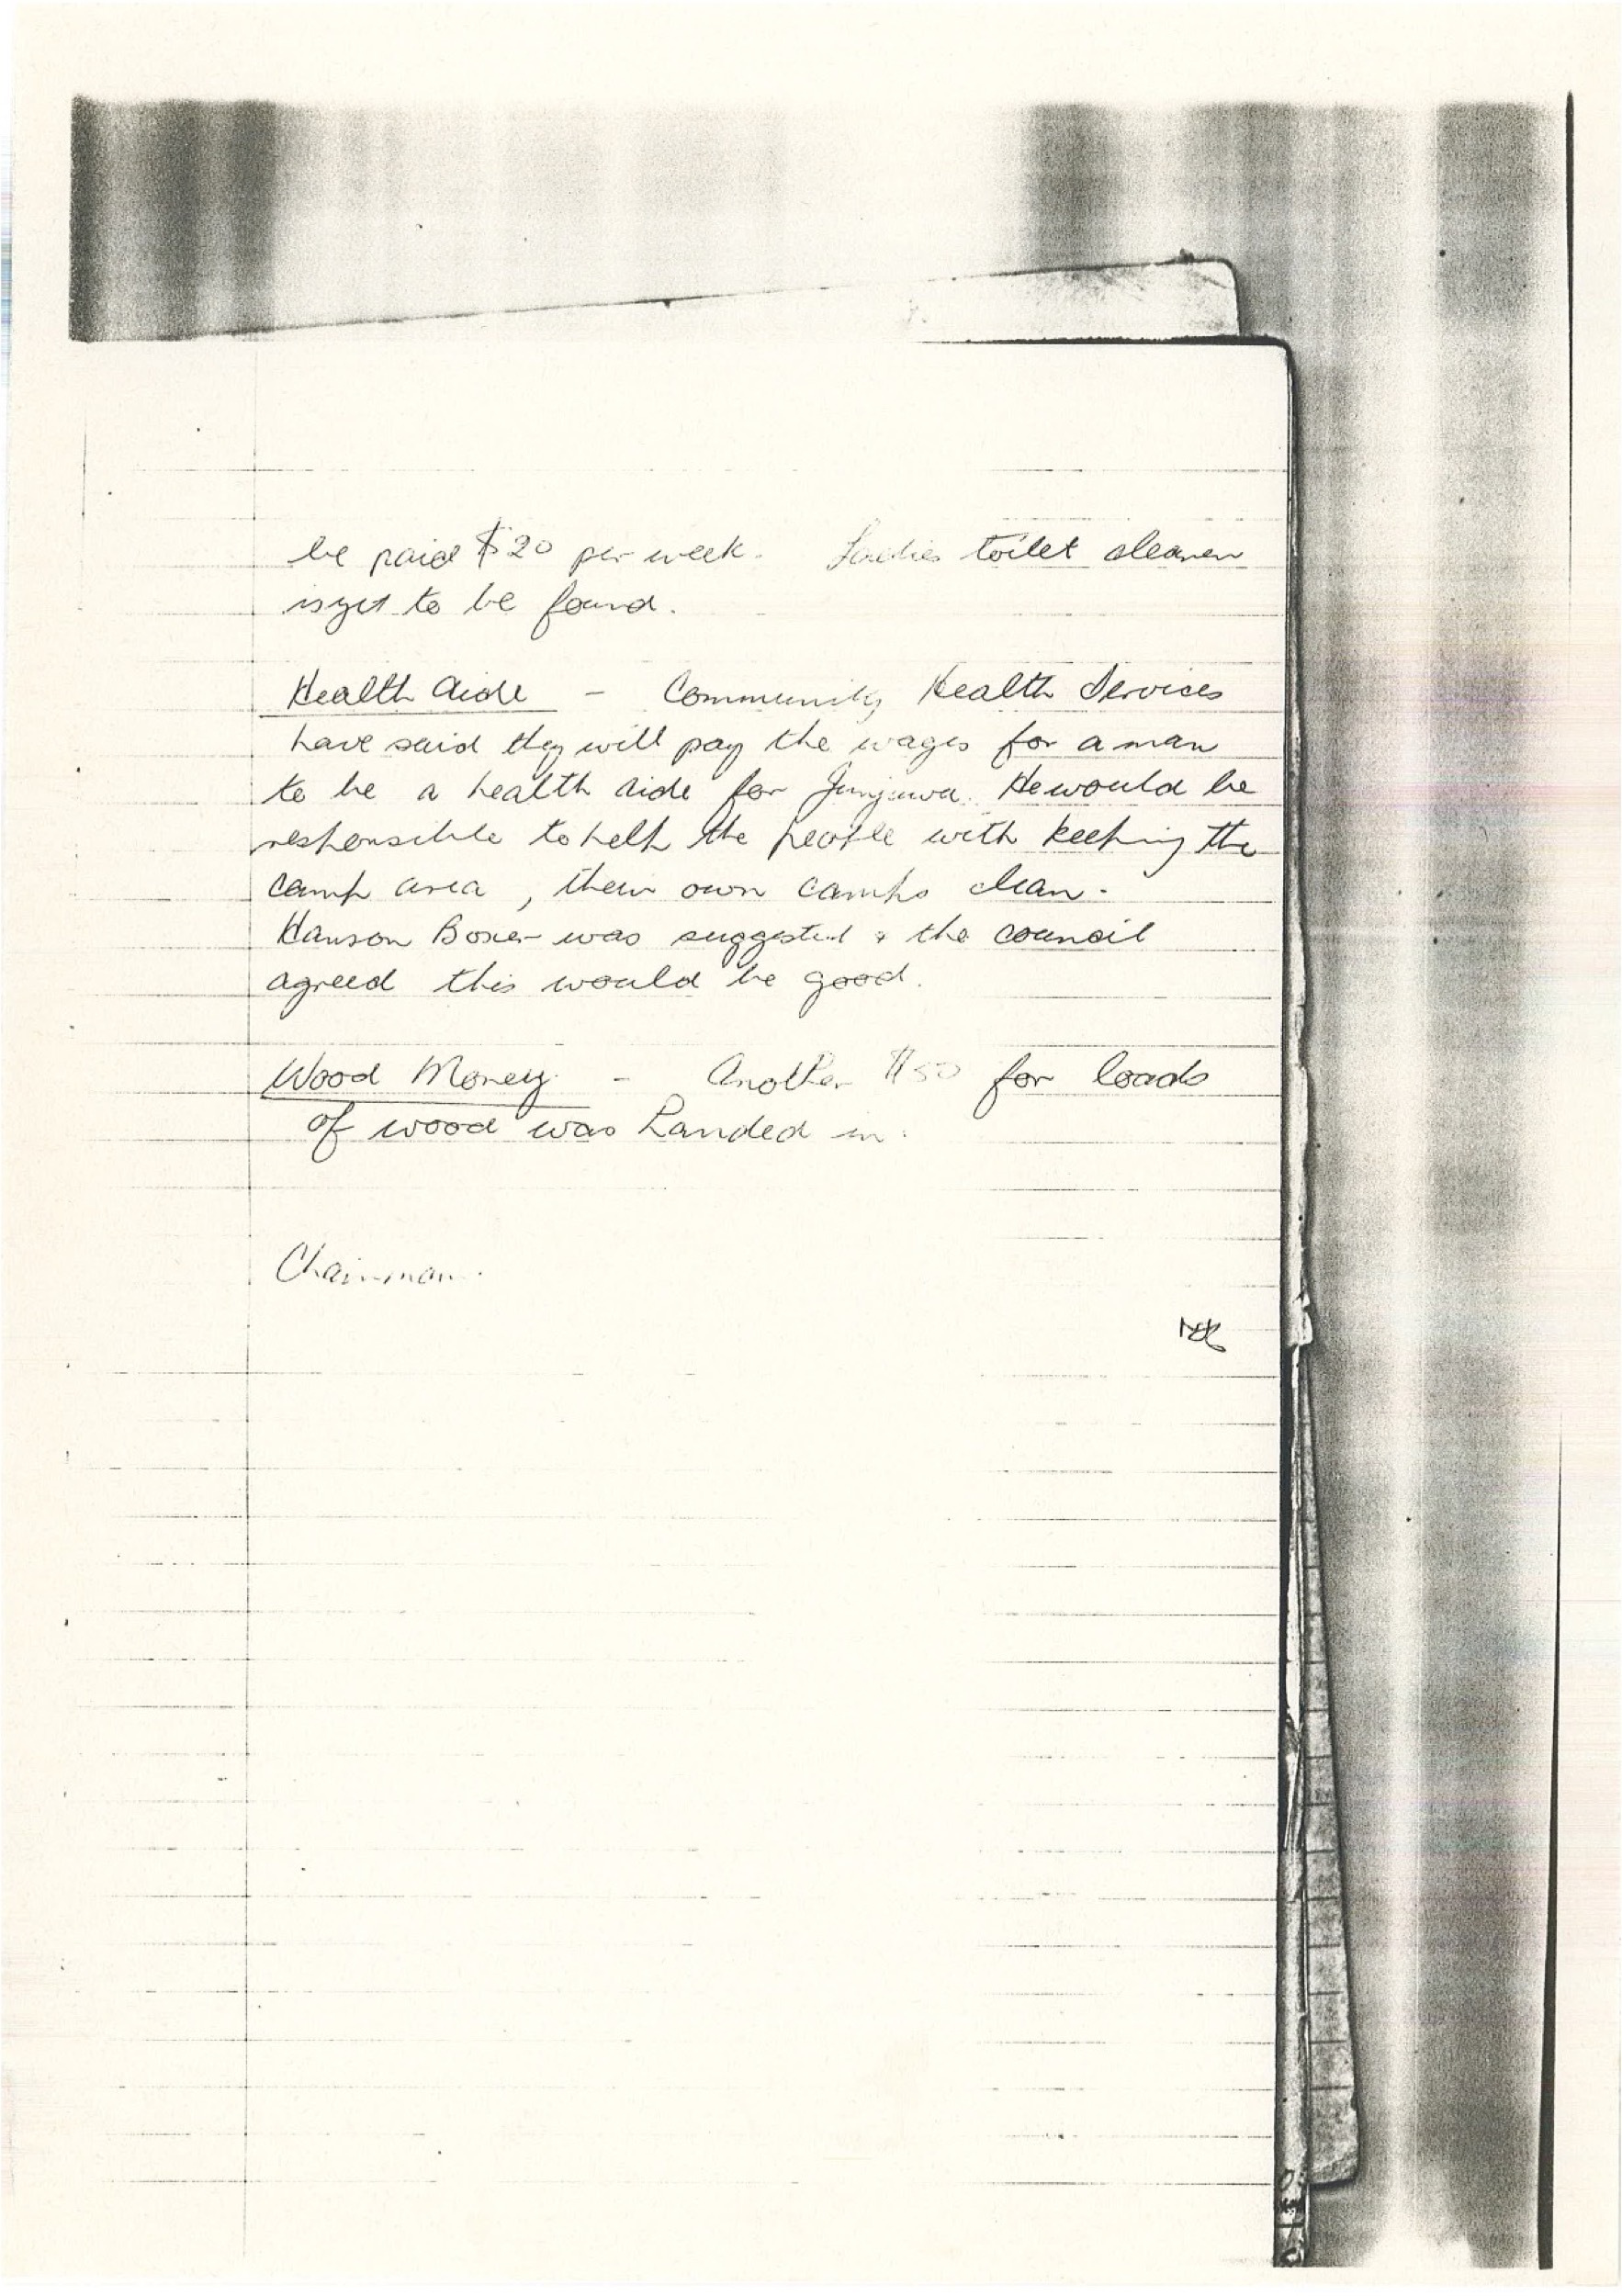 be paid $20 per week. Ladies toilet cleaner
is yet to be found.
Health Aide - Community Health Services
have said they will pay the wages for a man
to be a health aide for Junjuwa. He would be
responsible to help the people with keeping the
camp area, their own camps clean.
Hanson Boxer was suggested & the council
agreed this would be good.
Wood Money - Another $50 for loads
of wood was handed in.
Chairman.